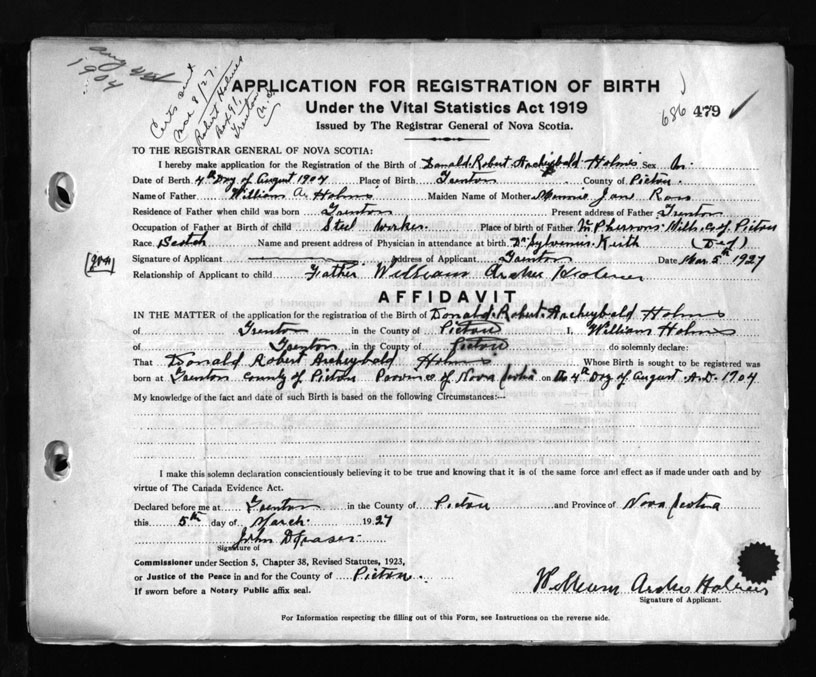 1904
Certs sent
Mar 8/27.
Robert Holmes
Box 91.
Trenton
N.S.
APPLICATION FOR REGISTRATION OF BIRTH
Under the Vital Statistics Act 1919
686 479
Issued by The Registrar General of Nova Scotia.
TO THE REGISTRAR GENERAL OF NOVA SCOTIA:
I hereby make application for the Registration of the Birth of Donald. Robert. Archeybald Holms Sex M.
Date of Berth 4th Day of August 1904 Place of Birth Trenton County of Pictou.
Name of Father William A. Holms Maiden Name of Mother Minnie Jane Ross
Residence of Father when child was born Trenton Present address of Father Trenton
Occupation of Father at Birth of child Steel Worker. Place of birth of Father McPhersons Mills, Co of Pictou
Race. Scotch Name and present address of Physician in attendance at birth. Dr Sylvenus Keith (Ded)
Signature of Applicant Address of Applicant Trenton Date Mar. 5th 1927
Relationship of Applicant to child Father William Archie Holmes
AFFIDAVIT
IN THE MATTER of the application for the registration of the Birth of Donald. Robert. Archeybald Holms
of Trenton in the County of Pictou I, William Holmes
of Trenton in the County of Pictou do solemnly declare:
That Donald Robert Archeybald Holms Whose Birth is sought to be registered was
born at Trenton County of Pictou Province of Nova Scotia on the 4th Day of August A.D. 1904
My knowledge of the fact and date of such Birth is based on the following Circumstances:--
I make this solemn declaration conscientiously believing it to be true and knowing that it is of the same force and effect as if made under oath and by
virtue of The Canada Evidence Act.
Declared before me at Trenton in the County of Pictou and Province of Nova Scotia
this 5th day of March 1927
John D Fraser
Signature of
Commissioner under Section 5, Chapter 38, Revised Statutes, 1923,
or Justice of the Peace in and for the County of Pictou
If sworn before a Notary Public affix seal.
William Archie Holmes
Signature of Applicant.
For Information respecting the filling out of this Form, see Instructions on the reverse side.